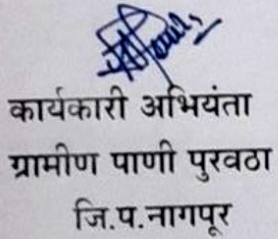 कार्यकारी अभियंता
ग्रामीण पाणी पुरवठा
जि.प.नागपूर